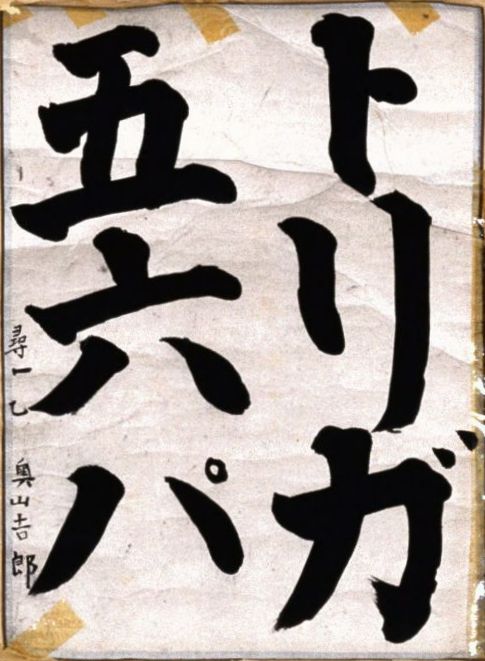 トリガ
五六パ
尋一乙 奥山吉郎